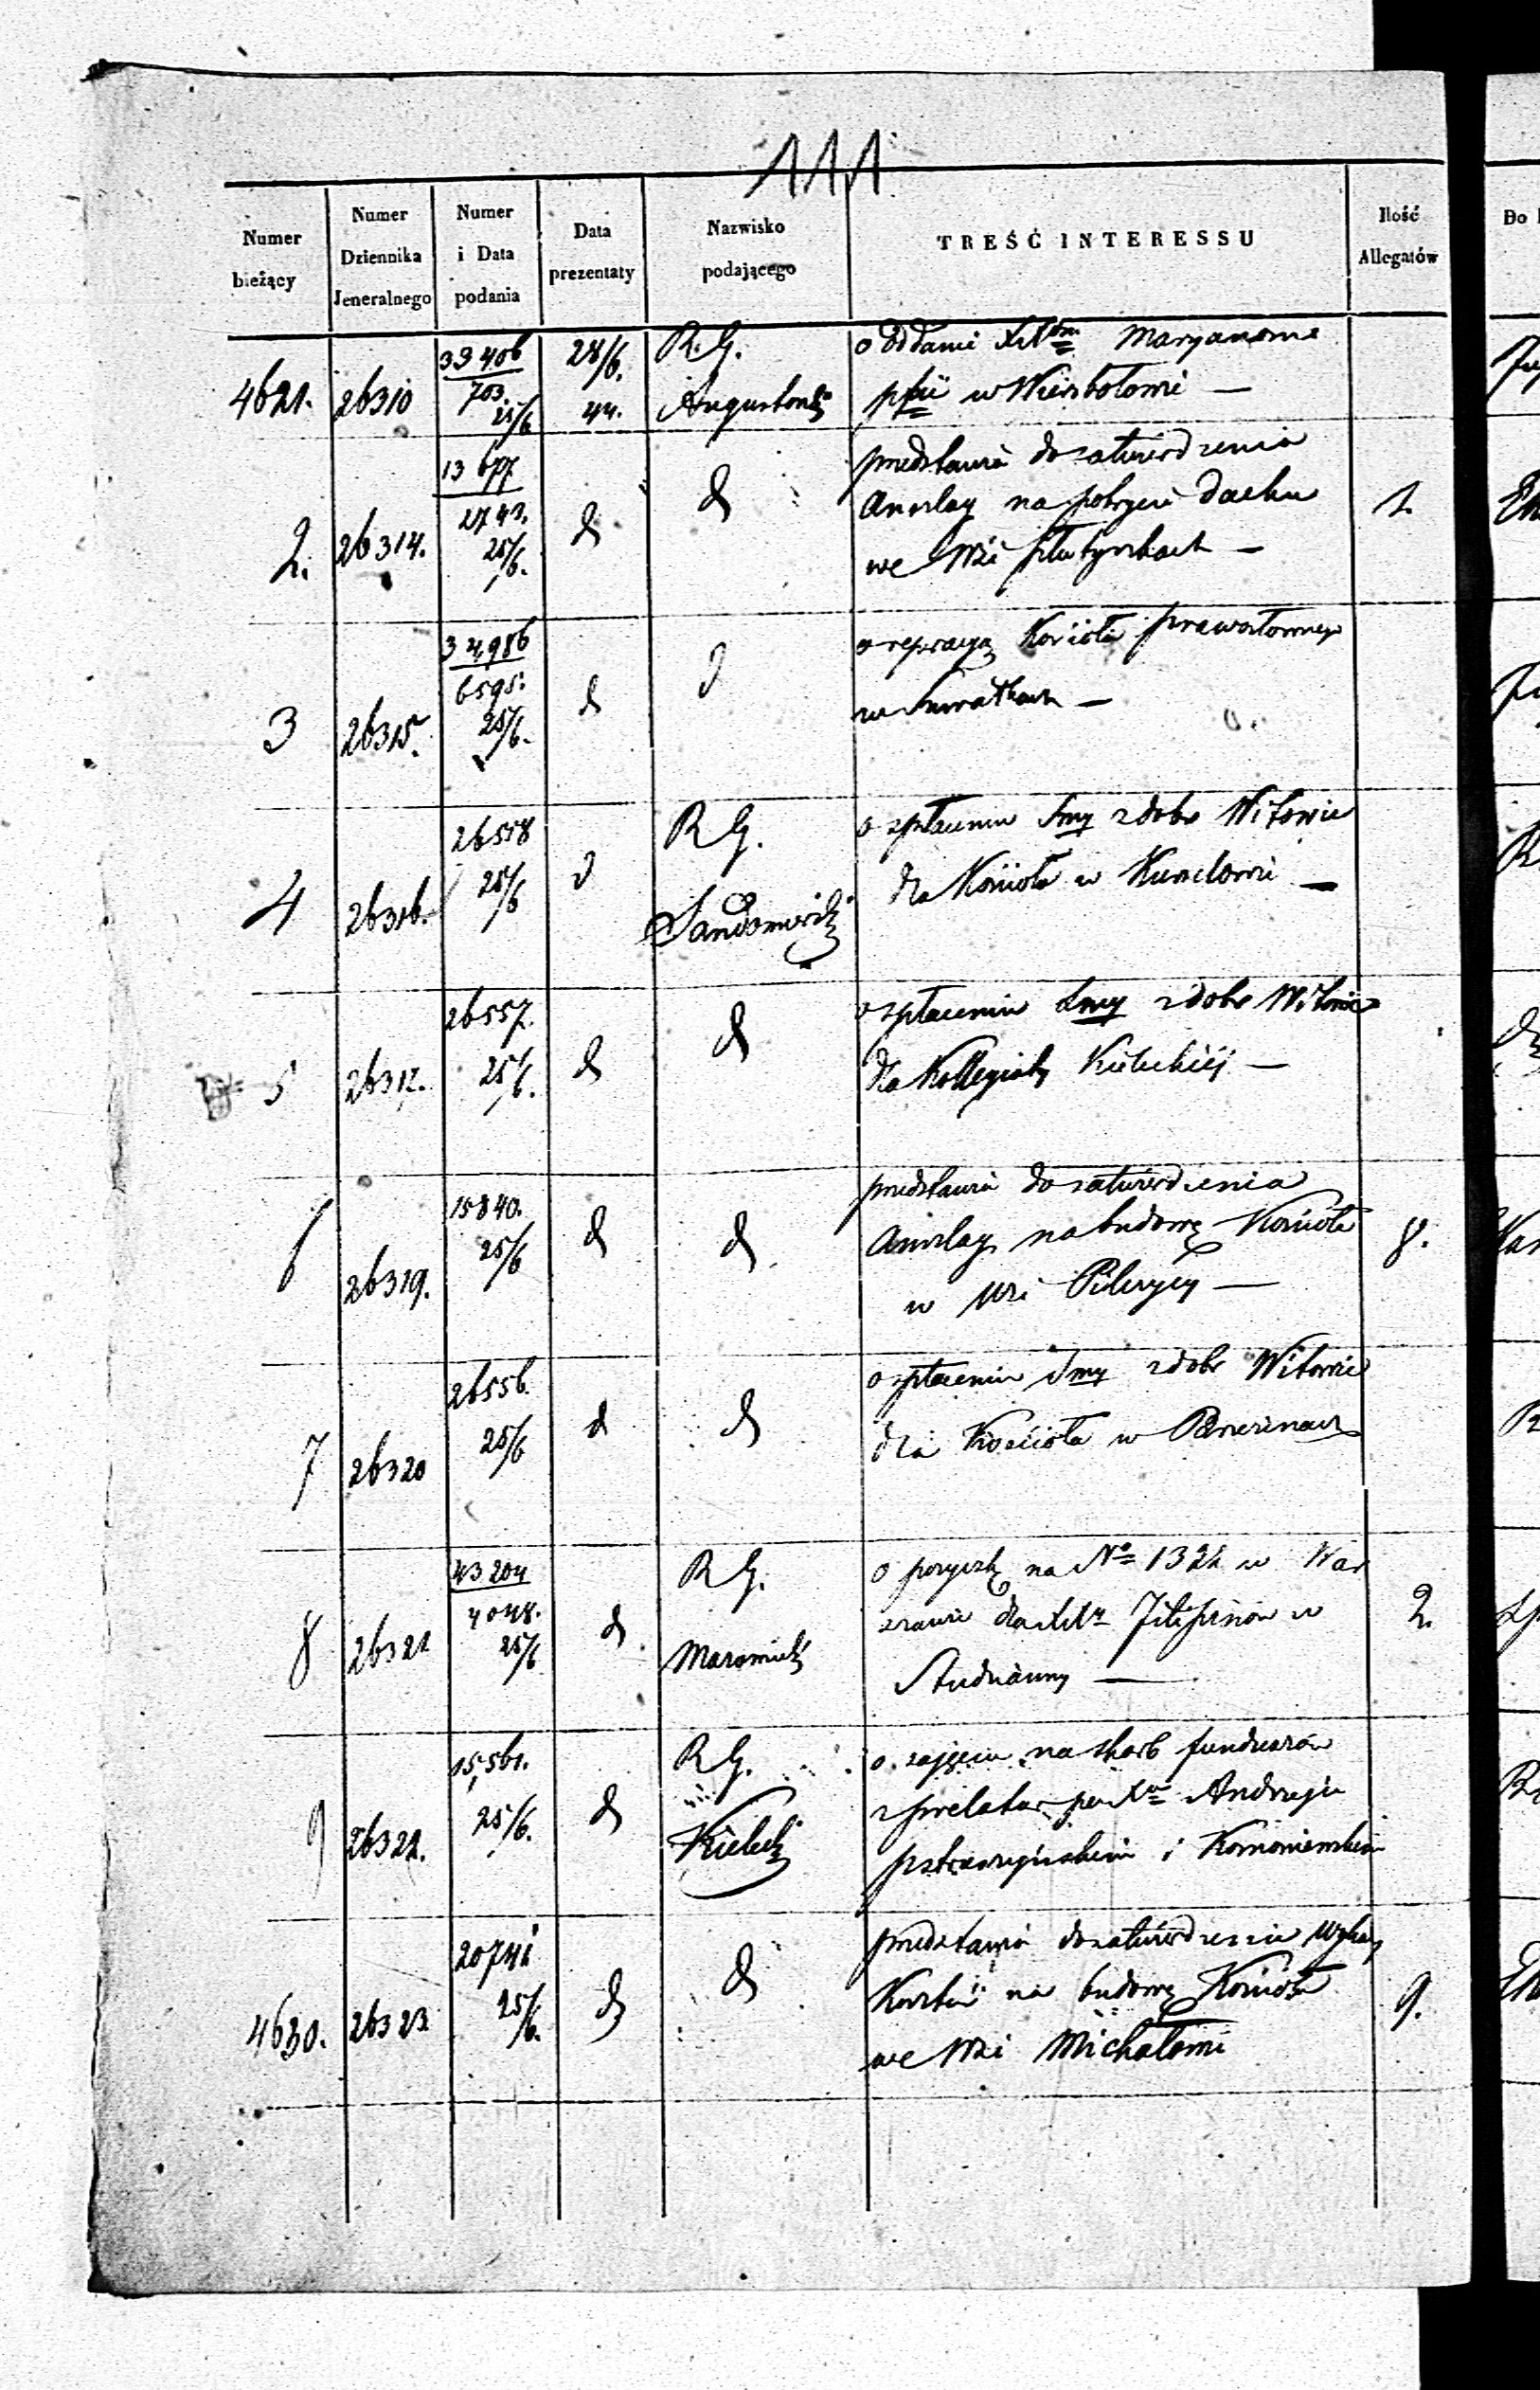 111
Numer bieżący
Numer Dziennika Jeneralnego
Numer i Data podania
Data prezentaty
Nazwisko podającego
TREŚĆ INTERESSU
Ilość Allegatów
Do
4621. 26310 39406 703. 25/6 28/6. 44. R. G. Augustowski
o oddanie Maryanom
w Wierzbołowie —
2. 26314. 13677 2743. 25/6. d d 1.
przedstawia do zatwierdzenia
Anszlag na pokrycie dachu
we Wsi —
3 26315. 34986 6595. 25/6. d d
o reperacyą Kościoła prawosławnego
w Suwałkach —
4 26316. 26558 25/6 d R G. Sandomirski
o spłaceniu Smy z dóbr Witowic
dla Kościoła w Kurzelowie —
5 26317. 26557. 25/6. d d
o spłaceniu Smy z dóbr Witowic
dla Kollegiaty Kieleckiej —
6 26319. 15840. 25/6 d d 8.
przedstawia do zatwierdzenia
Anszlag na budowę Kościoła
w Wsi Pilczycy —
7 26320 26556. 25/6 d d
o spłaceniu Smy z dobr Witowic
dla Kościoła w
8 26321 43204 4048. 25/6 d R G. Mazowiecki 2.
o pożyczkę na No 1322 w War
szawie dla Filipinów w
Studzianny —
9 26322. 15,561. 25/6. d R G. Kielecki
o zajęciu na skarb funduszów
z prelatur po Andrzeju
i
4630. 26323 20741 25/6. d d 9.
przedstawia do zatwierdzenia Wykaz
Kosztów na budowę Kościoła
we Wsi Michałowie